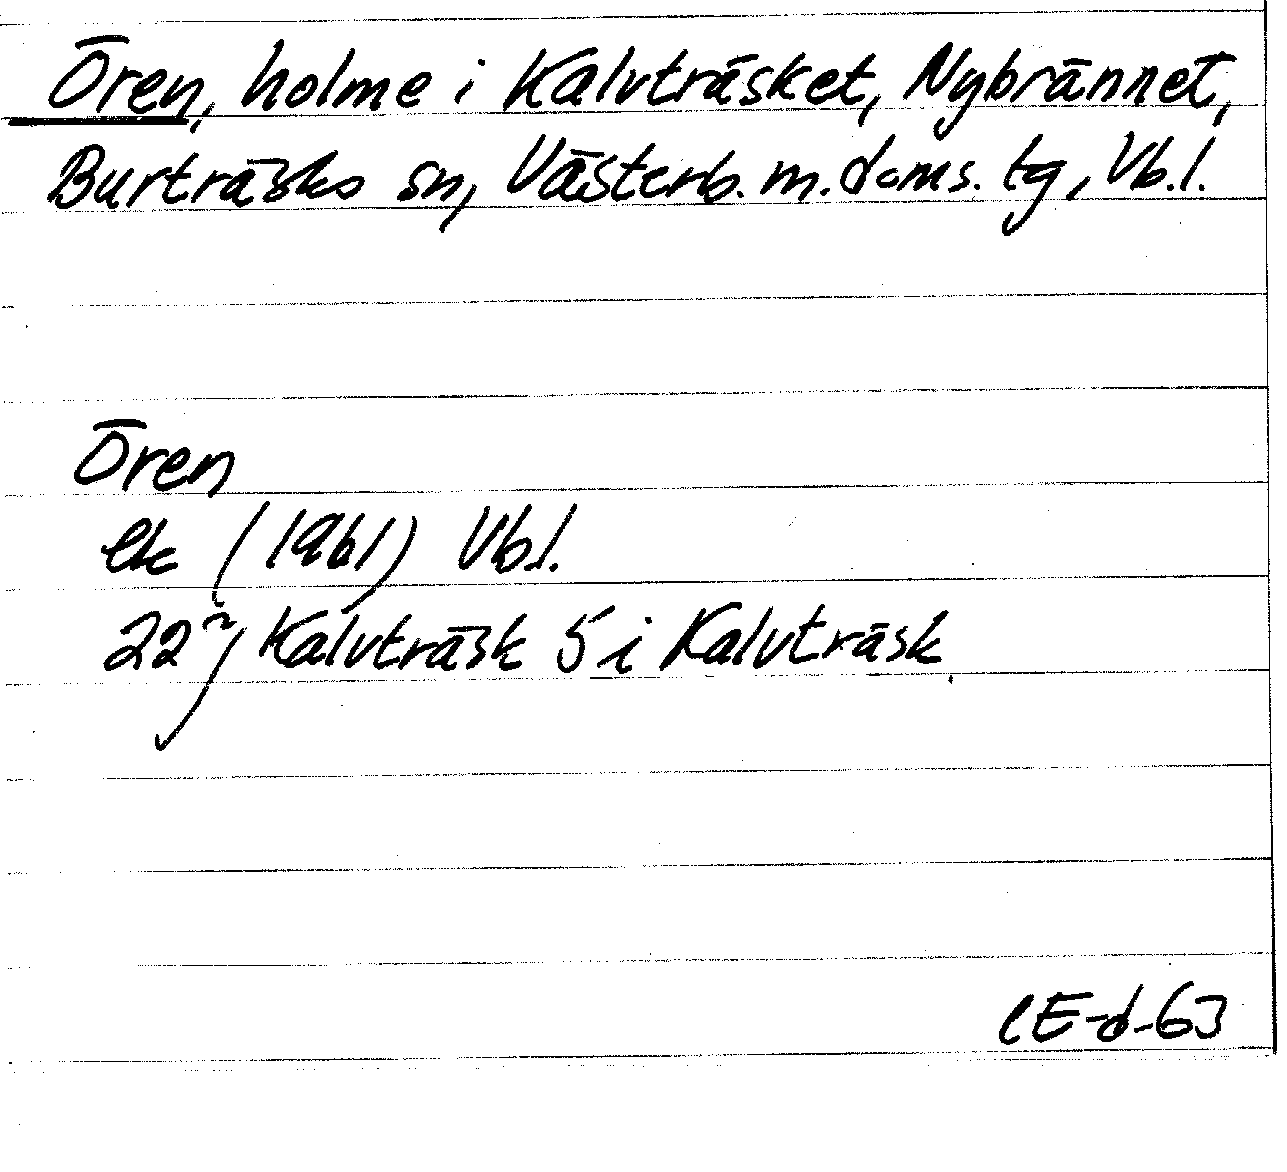 Ören, holme i Kalvträsket, Nybrännet,
Burträsks sn, Västerb. m. doms. tg, Vb. l.
Ören
ek (1961) Vb l.
22 Kalvträsk 5 i Kalvträsk
CE-d-63